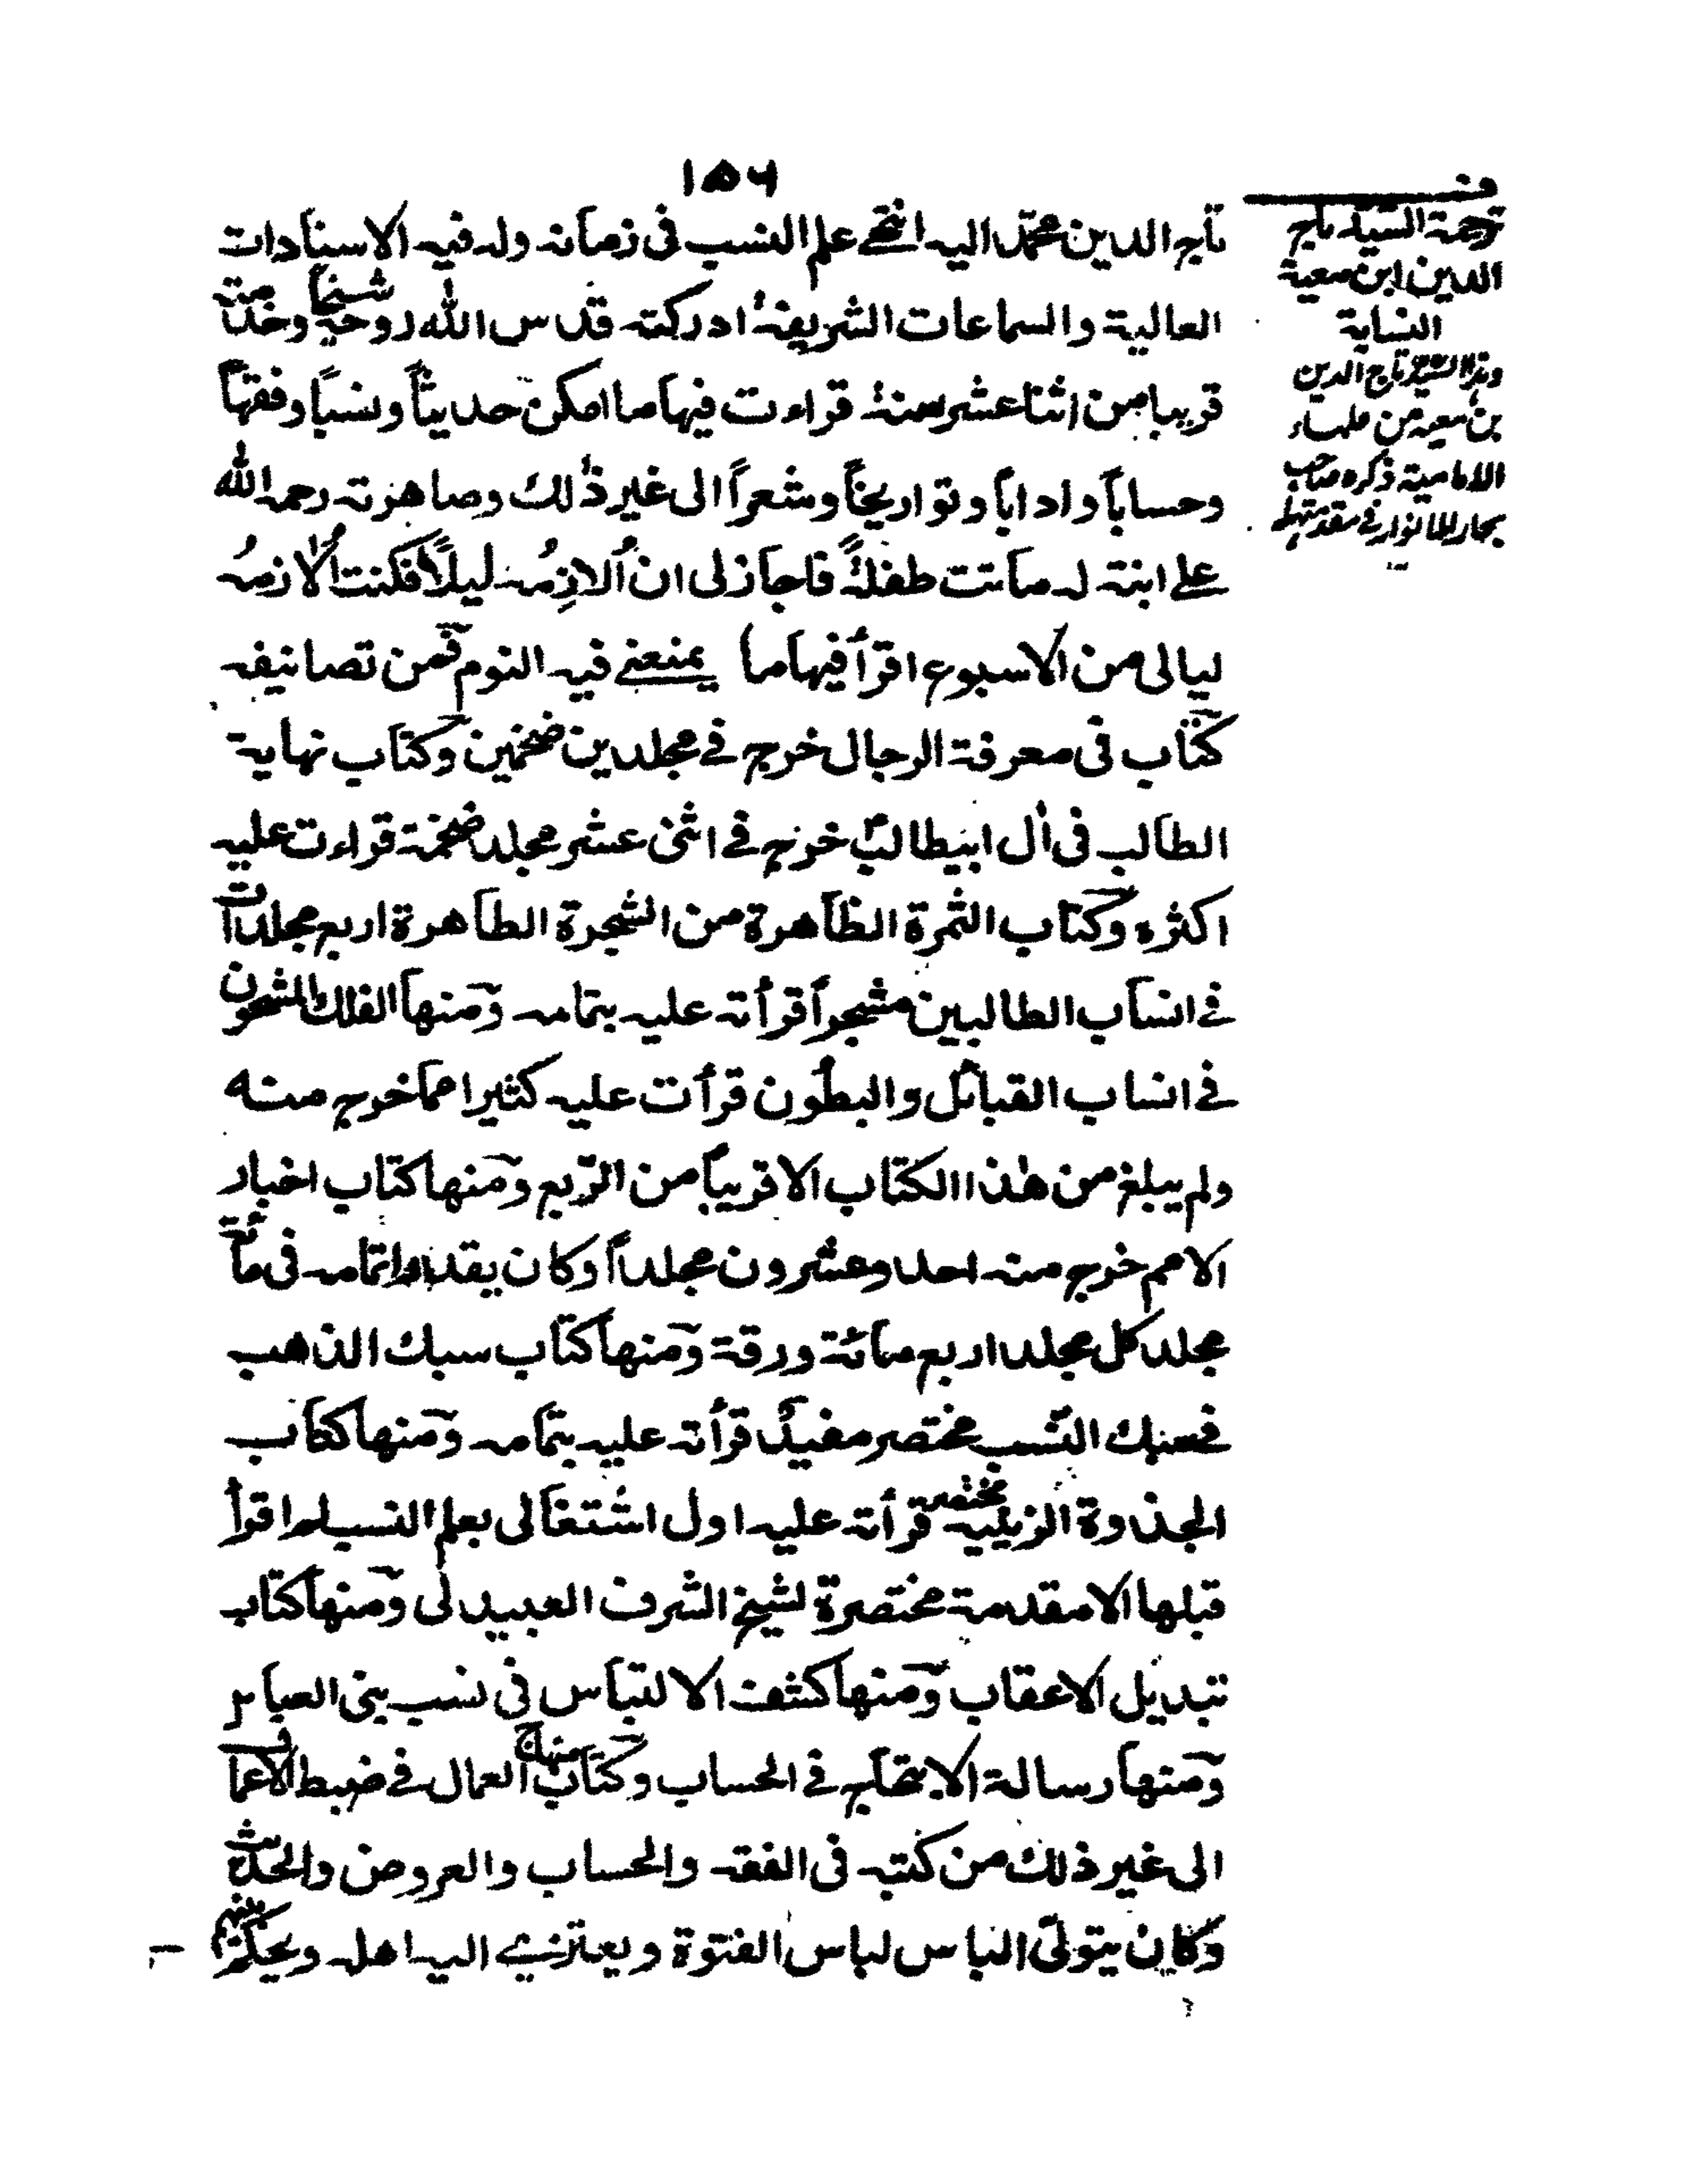 ١٥٦
تاج الدين محمد اليه انتهى علم النسب فى زمانه وله فيه الاسنادات
العالية والسماعات الشريفة ادركته قدس الله روحه شيخا وخدمته
قريبا من اثنا عشر سنة قراءت فيها ما امكن حديثاً ونسباً وفقهاً
وحساباً واداباً وتواريخاً وشعراً الى غير ذلك وصاهرته رحمه الله
على ابنة له ماتت طفلةً فاجاز لى ان ألازِمُه ليلاً فكنت ألازمُه
ليالى من الاسبوع اقرأ فيها ما يمنعنى فيه النوم فمن تصانيفه
كتاب فى معرفة الرجال خرج فى مجلدين ضخمين وكتاب نهاية
الطالب فى آل ابيطالب خرج فى اثنى عشر مجلد ضخمة قراءت عليه
اكثره وكتاب الثمرة الظاهرة من الشجرة الطاهرة اربع مجلدات
فى انساب الطالبين مشجراً قرأته عليه بتمامه ومنها الفلك المشحون
فى انساب القبائل والبطون قرأت عليه كثيرا مما خرج منه
ولم يبلغ من هذا الكتاب الا قريباً من الرّبع ومنها كتاب اخبار
الامم خرج منه احد وعشرون مجلداً وكان يقدر اتمامه فى مأة
مجلد كل مجلد اربع مائة ورقة ومنها كتاب سبك الذهب
فى سبك النّسب مختصر مفيد قرأته عليه بتمامه ومنها كتاب
الجذوة الزينية مختصر قرأته عليه اول اشتغالى بعلم النسب لم اقرأ
قبلها الا مقدمة مختصرة لشيخ الشرف العبيدلى ومنها كتاب
تبديل الاعقاب ومنها كشف الالتباس فى نسب بنى العباس
ومنها رسالة الابتهاج فى الحساب وكتاب منهاج العمال فى ضبط الاعمال
الى غير ذلك من كتبه فى الفقه والحساب والعروض والحديث
وكان يتولى الباس لباس الفتوة ويعتزى اليه اهله ويحكم بينهم
ترجمة السيد تاج
الدين ابن معية
النسابة
وهذا السيد تاج الدين
بن معيه من علماء
الامامية ذكره صاحب
بحار الانوار فى مقدمته